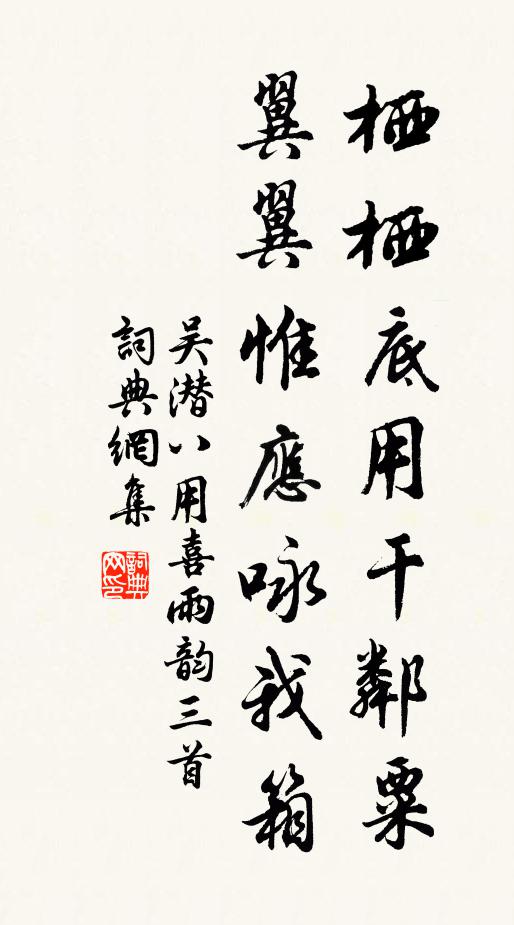 栖栖底用干鄰粟
翼翼惟應咏我箱
吴潜八用喜雨韵三首
詞典網集
詞典網印